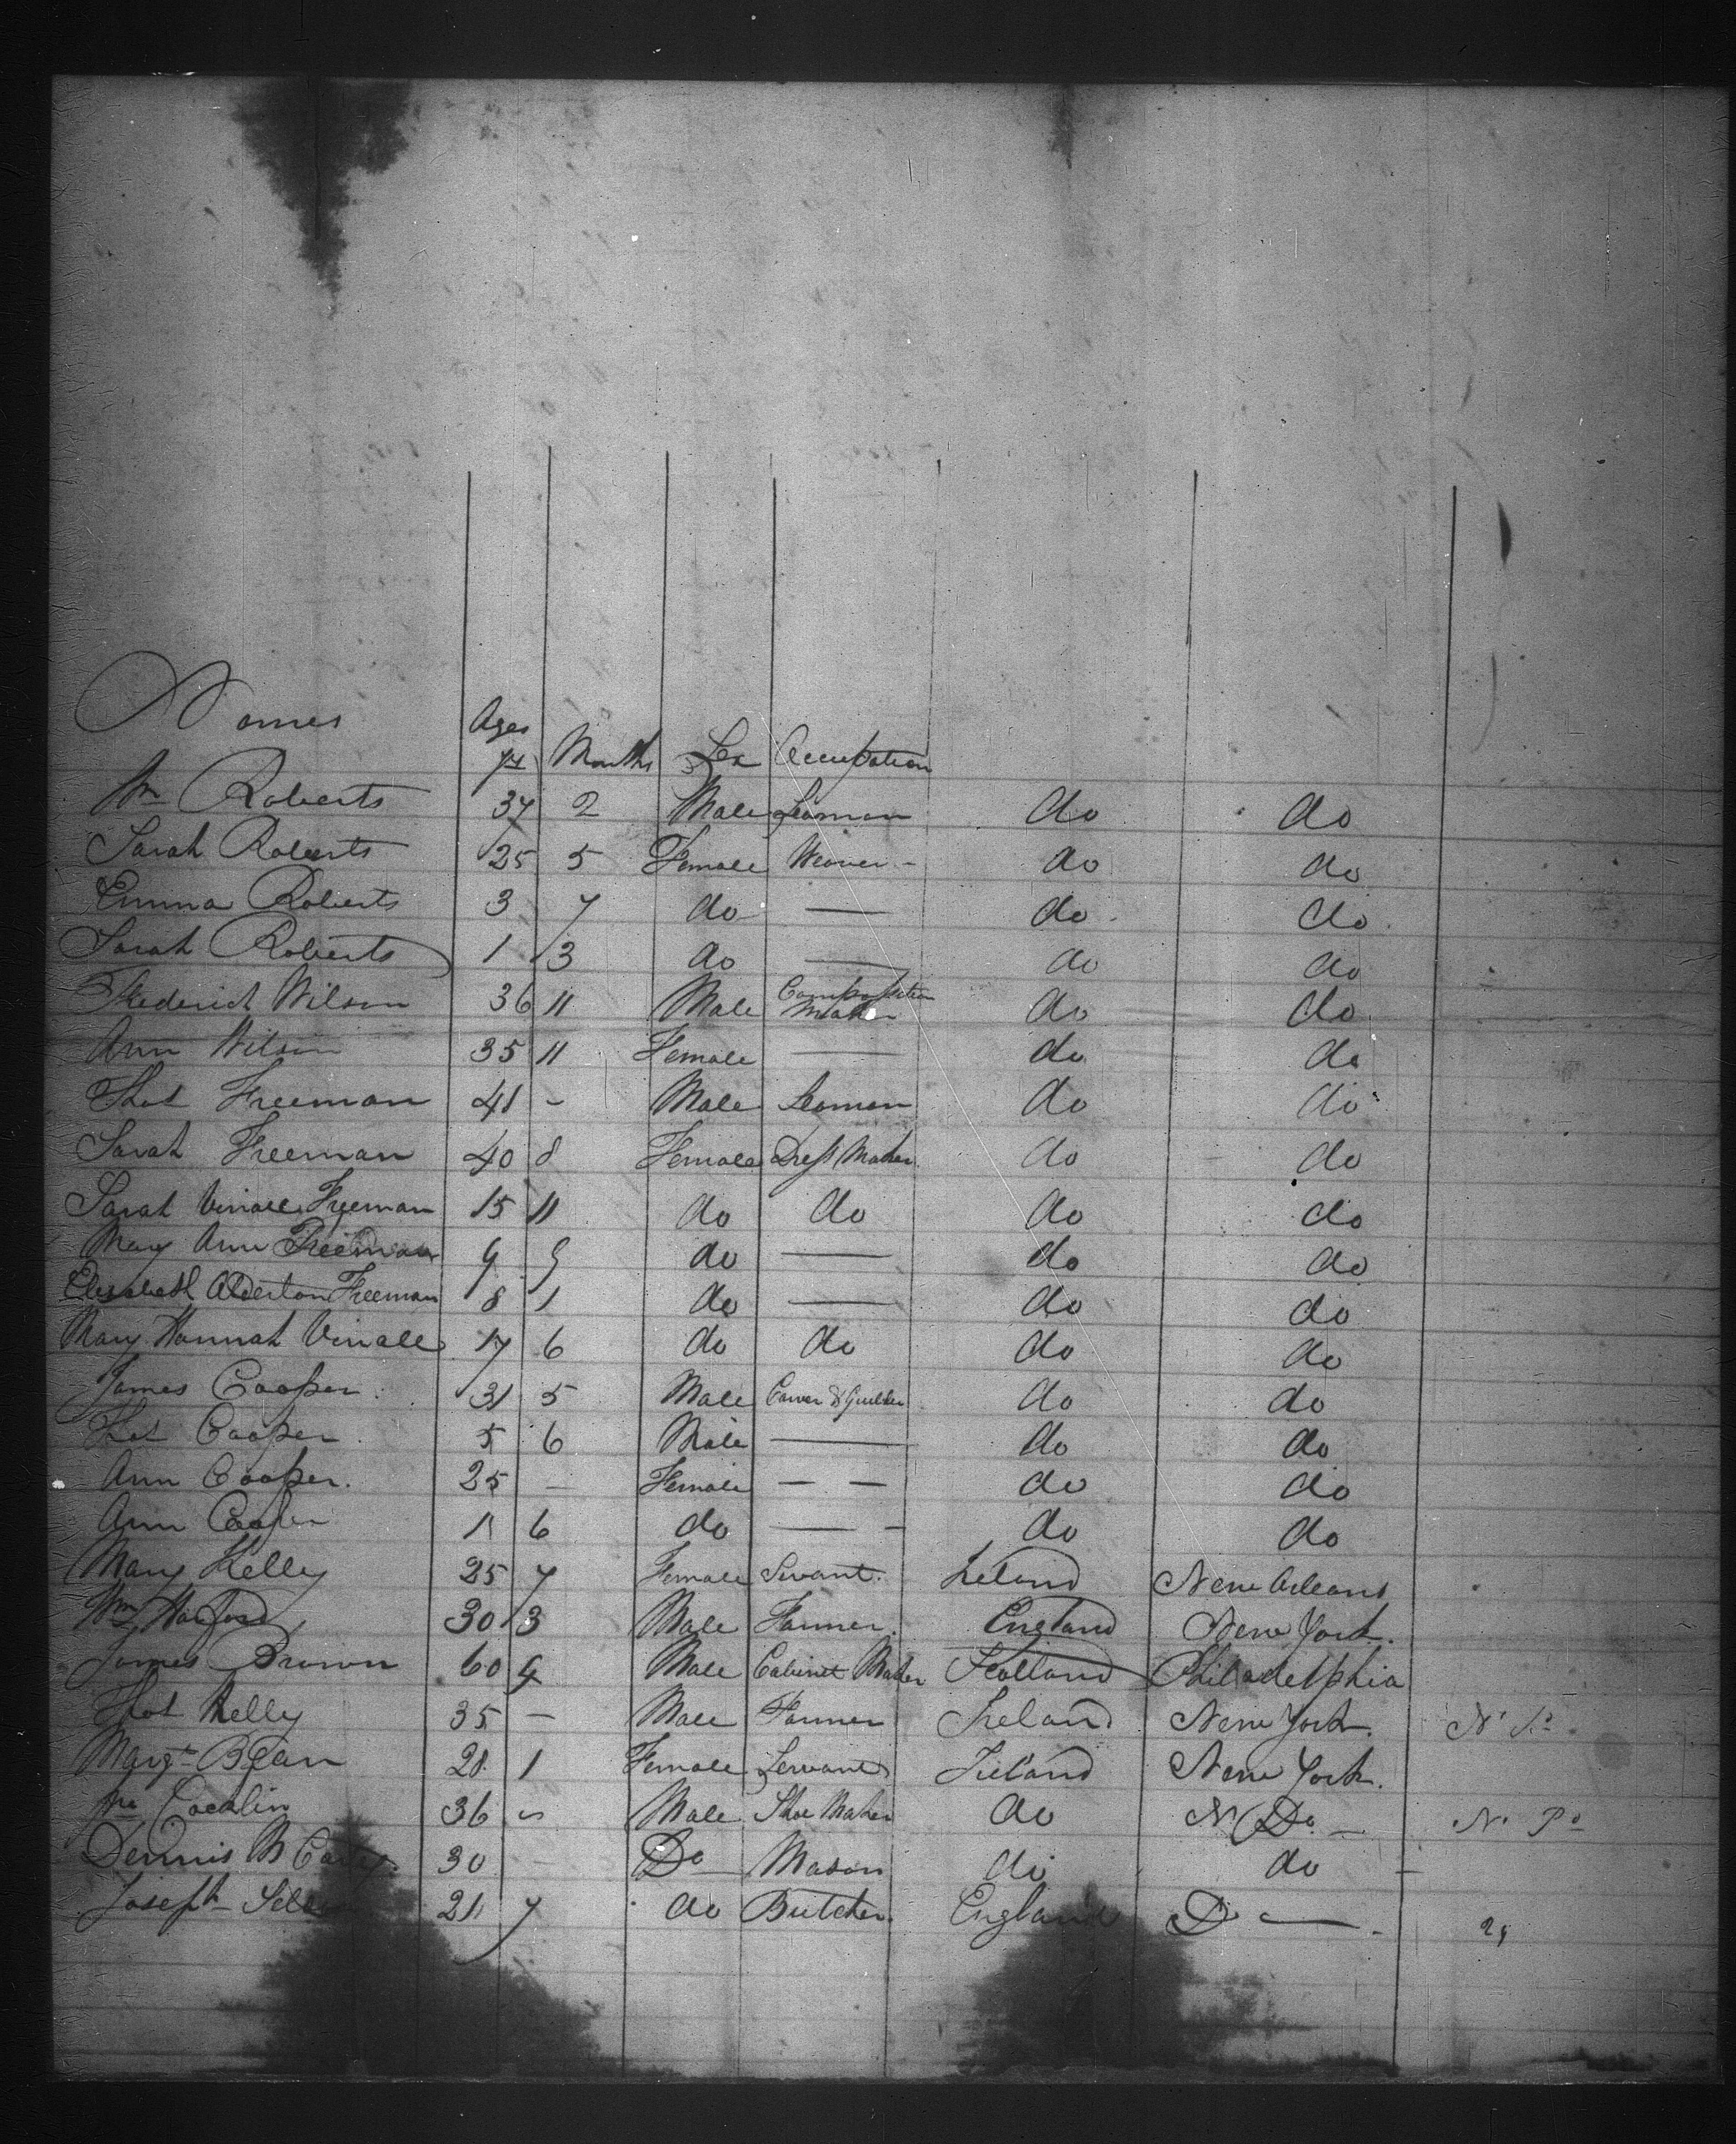 Names Ages yrs Months Sex Occupation
Wm Roberts 34 2 Male Seaman do do
Sarah Roberts 25 5 Female Weaver - do do
Emma Roberts 3 7 do — do do
Sarah Roberts 1 3 do — do do
Frederick Wilson 36 11 Male Composition Maker do do
Ann Wilson 35 11 Female — do do
Thos Freeman 41 - Male Seaman do do
Sarah Freeman 40 8 Female Dress Maker do do
Sarah Vinall Freeman 15 11 do do do do
Mary Ann Freeman 9 9 do — do do
Elizabeth Alderton Freeman 8 1 do — do do
Mary Hannah Vinall 17 6 do do do do
James Cooper 31 5 Male Carver & Guilder do do
Thos Cooper 5 6 Male — do do
Ann Cooper. 25 — Female — — do do
Ann Cooper 1 6 do — - do do
Mary Kelly 25 7 Female Servant. Ireland New Orleans
Wm 30 3 Male Farmer. England New York.
James Brown 60 4 Male Cabinet Maker Scotland Philadelphia
Thos Kelly 35 — Male Farmer Ireland New York.
Margt Bean 28 1 Female Servant Ireland New York.
Coughlin 36 Male Shoe Maker do N Do —
Dennis Mc Carty 30 — Do Mason do do —
Joseph 21 7 do Butcher. England Do —